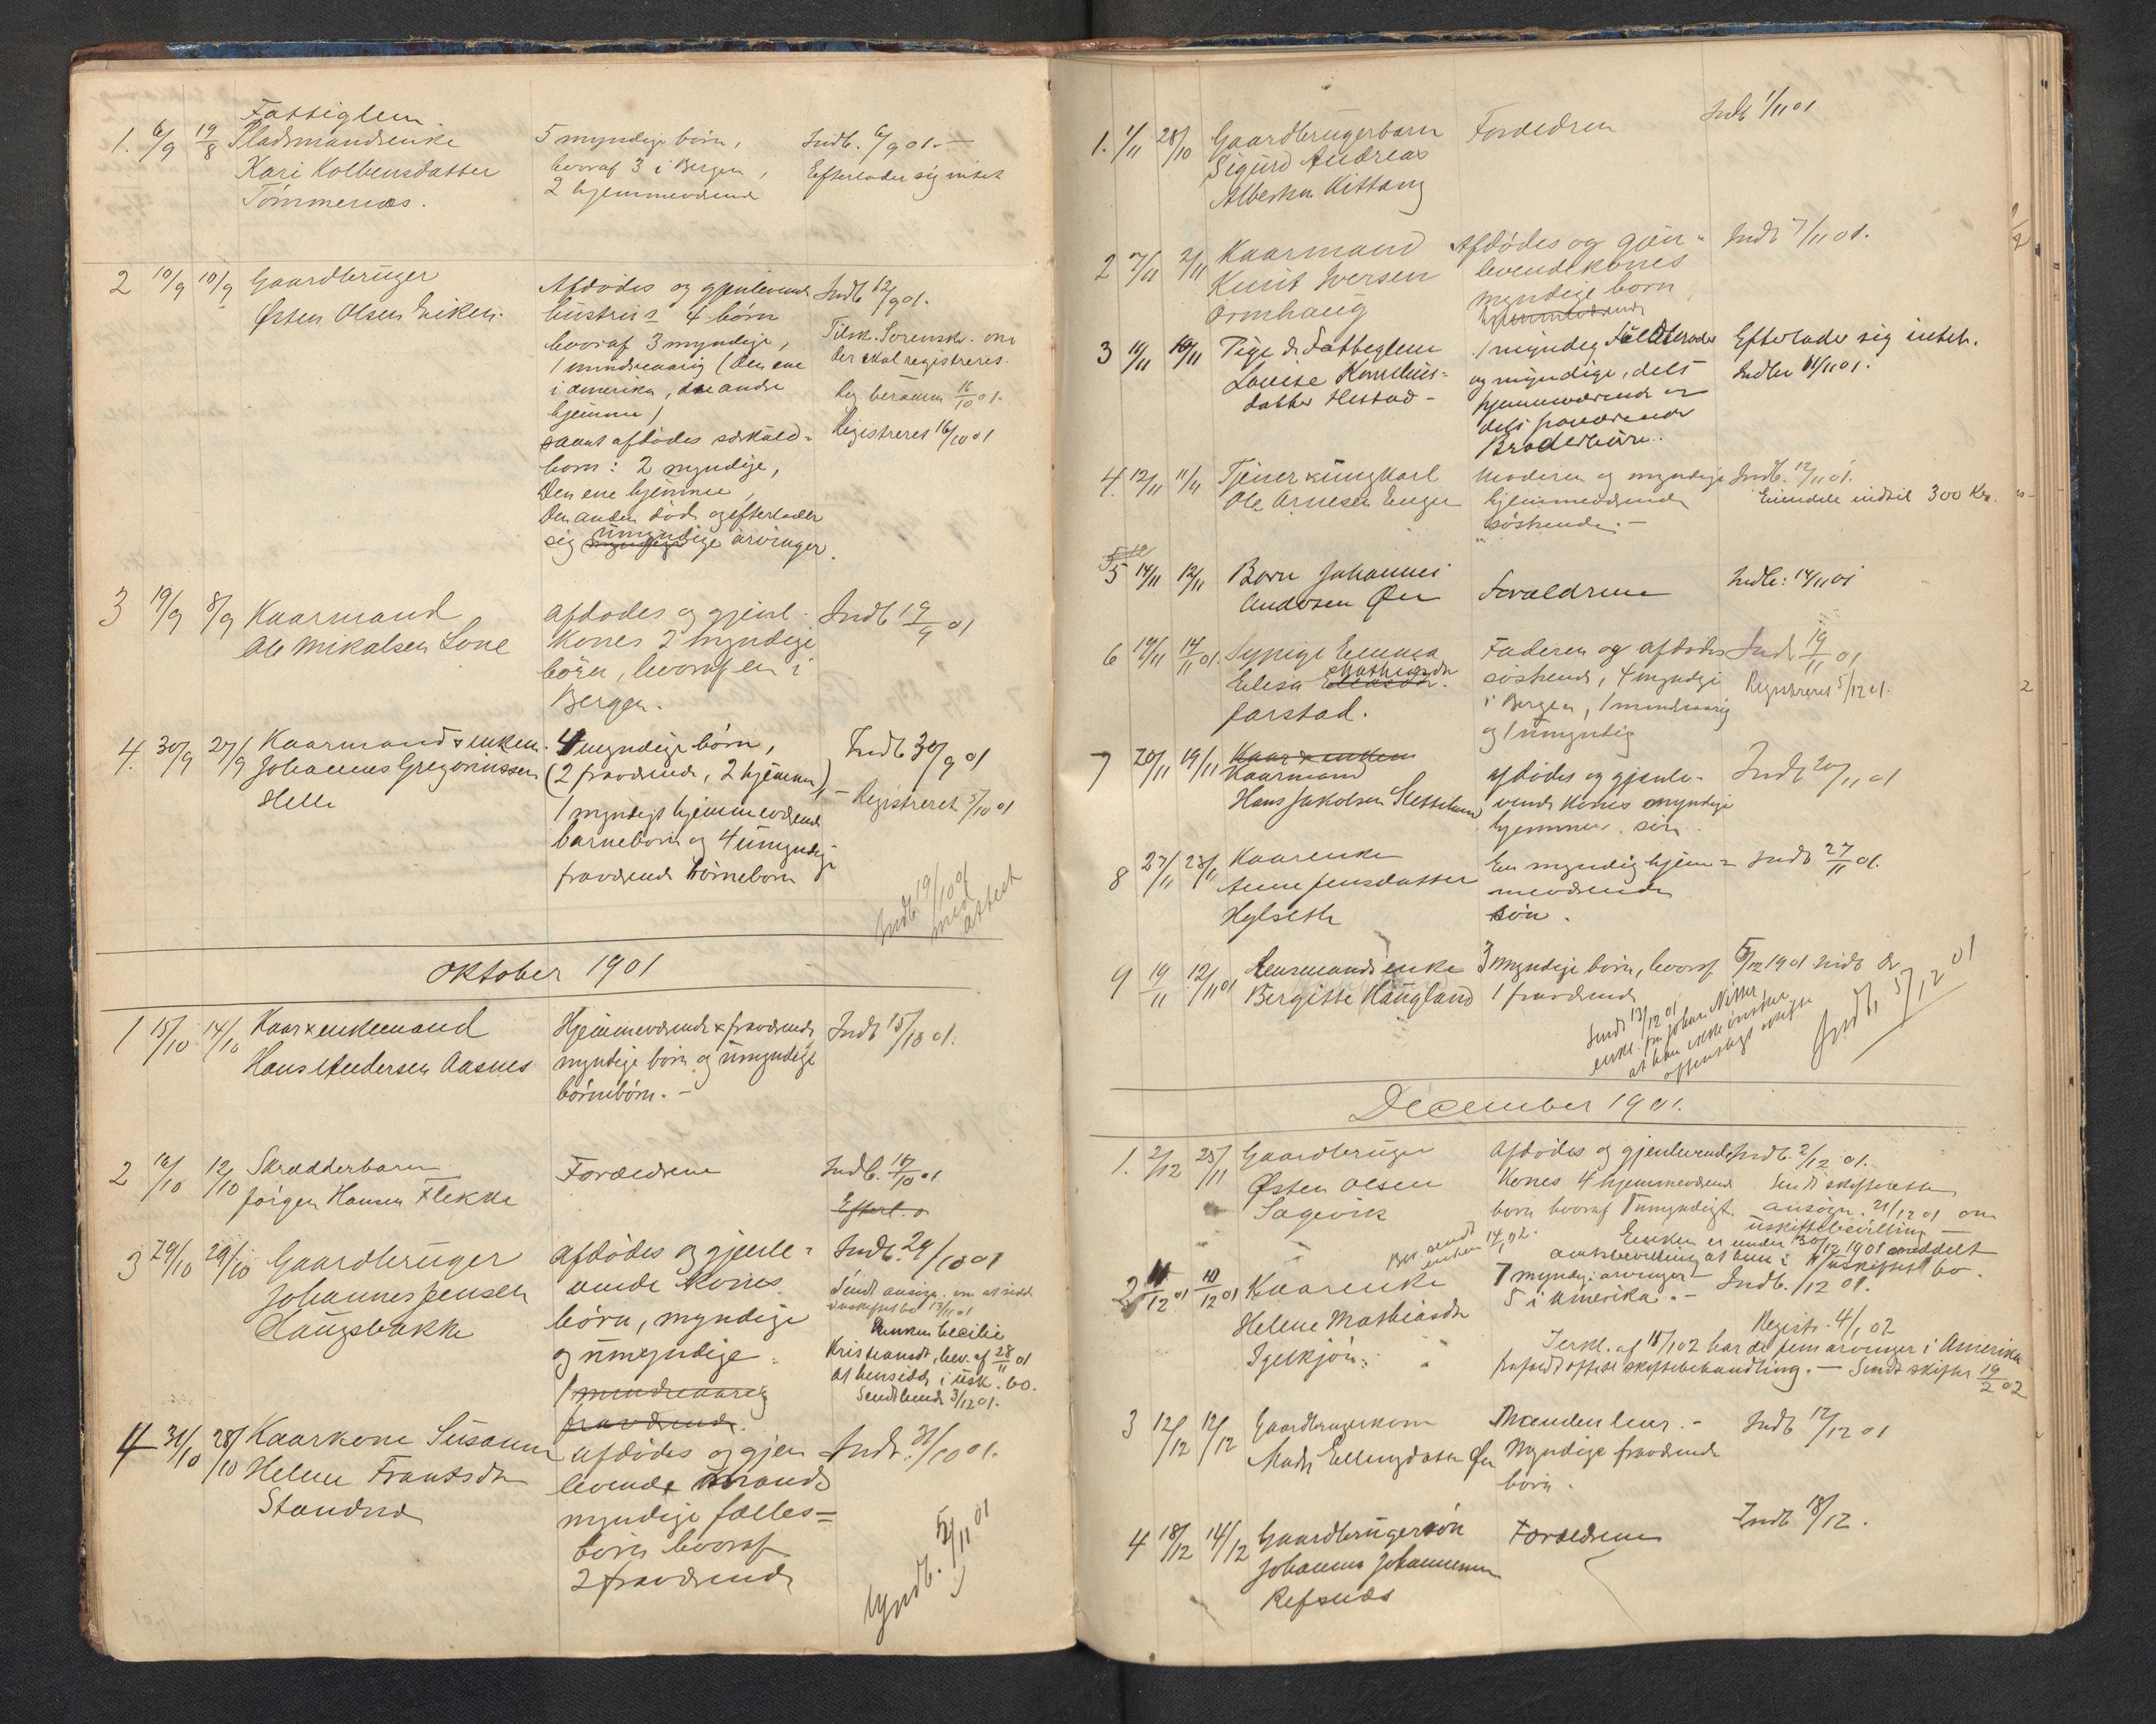 1. 6/9 19/8 Fattiglem
Pladsmandsenke
Kari Kolbensdatter
Tömmernæs.
5 myndige börn,
hvoraf 3 i Bergen,
2 hjemmeværende
Indb. 6/9 01.—
Efterlader sig intet
2 12/9 10/9 Gaardbruger
Østen Olsen Eiken.
Afdödes og gjenlevende
hustrus 4 börn
hvoraf 3 myndige,
1 mindreaarig (den ene
i amerika, de andre
hjemme)
samt afdödes særkuld-
born: 2 myndige,
Den ene hjemme,
Den anden död og efterlader
sig umyndige arvinger.
Indb 12/9 01.
Tilsk. Sorensk. om
der skal registreres.
Reg berammet 16/10 01.
Registreret 16/10 01
3 19/9 8/9 Kaarmand
Ole Mikalsen Lone
afdödes og gjenl.
Kones 2 myndige
börn, hvoraf en i
Bergen.
Indb 19/9 01
4. 30/9 27/9 Kaarmand & enkem.
Johannes Gregoriussen
Helle
4 myndige börn,
(2 fraværende, 2 hjemme)
1 myndigt hjemmeværende
barnebarn og 4 umyndige
fraværende börneborn
Indb 30/9 01
Registreret 5/10 01
Indb 19/10 01
med
attest
Oktober 1901
1 15/10 14/10 Kaar & enkemand
Hans Andersen Aasnes
Hjemmeværende & fraværende
myndige börn og umyndige
börnebörn. —
Indb 15/10 01.
2 16/10 12/10 Skrædderbarn
Jörgen Hansen Flekke
Forældrene
Indb. 16/10 01
Efterl. 0
3 29/10 29/10 Gaardbruger
Johannes Jensen
Haugsbakke
afdödes og gjenle-
vende Kones
börn, myndige
og umyndige
1 mindreaarig
fraværende
Indb. 29/10 01
Sendt ansögn. om at sidde
i uskiftet bo 13/11 01
Enken Cecilie
Kristiansdt, bev. af 28/11 01
at hensidde i usk. bo.
Sendt hende 3/12 01.
4 31/10 28/10 Kaarkone Susanne
Helene Frantsdtr
Standnæ
afdödes og gjen
levende mands
myndige fælles=
börn hvoraf
2 fraværende
Indb. 31/10 01.
Indb. 5/11 01
1. 1/11 28/10 Gaardbrugerbarn
Sigurd Andreas
Albertsen Kittang
Forældren
Indb 1/11 01
2 7/11 2/11 Kaarmand
Knut Iversen
Ormhaug
Afdödes og gjen-
levende kones
myndige born,
hjemmeværende
Indb 7/11 01.
3 11/11 10/11 Pige & Fattiglem
Louise Kornelius-
datter Hestad —
1 myndig
og myndige, dels
hjemmeværende og
dels fraværende
Broderbörn.
Efterlader sig intet.
Indb 11/11 01.
4. 12/11 11/11 Tjener & ungkarl
Ole Arnesen Enger
Moderen og myndige
hjemmeværende
söskende. —
Indb. 12/11 01.
Eiendele indtil 300 Kr.
5 14/11 12/11 Barn Johannes
Andersen Øen
Forældrene
Indb: 14/11 01
6 19/11 14/11 01. Sypige Emma
Elesa Mathiasdtr
Jarstad.
Faderen og afdödes
söskende, 4 myndige
i Bergen, 1 mindreaarig
og 1 umyndig
Indb 19/11 01
Registreret 5/12 01.
7 20/11 19/11 Kaar & enkem
Kaarmand
Hans Jakobsen Slettehaug
afdödes og gjenle-
vende Kones myndige
hjemmev. sön.
Indb 20/11 01
8 27/11 23/11 Kaarenke
Anne Jensdatter
Hylseth
En myndig hjem=
meværende
sön.
Indb 27/11 01.
9 19/11 12/11 01 Lensmandsenke
Bergitte Haugland
3 myndige börn, hvoraf
1 fraværende
5/12 1901 Indb
Sendt 13/12 01
erkl. fra Johan Nitter
at han ikke önsker
offentligt skifte
Indb. 5/12 01
December 1901.
1. 2/12 25/11 Gaardbruger
Østen Olsen
Sagevik
Afdödes og gjenlevende
Kones 4 hjemmeværende
born hvoraf 1 umyndigt.
Indb. 2/12 01.
Sendt skifteretten
ansögn. 21/12 01 om
uskiftebevilling
Enken er under 30/12 1901 meddelt
amtsbevilling at hun i uskiftet bo.
Bev. sendt
enken 14/1 02.
2 11/12 01 10/12 01 Kaarenke
Helene Mathiasdtr
Igelkjön.
7 myndig. arvinger —
5 i Amerika. —
Indb. /12 01.
Registr. 4/1 02
I erkl. af 18/1 02 har de fem arvinger i Amerika
skiftebehandling. — Sendt skifter 19/2 02
3 12/12 12/12 Gaardbrugerkone
Madz Ellingsdatter Øen
Manden lever. —
Myndige fraværende
börn.
Indb 12/12 01
4 18/12 14/12 Gaardbrugersön
Johannes Johannesen
Refsnæs
Forældrene
Indb 18/12.